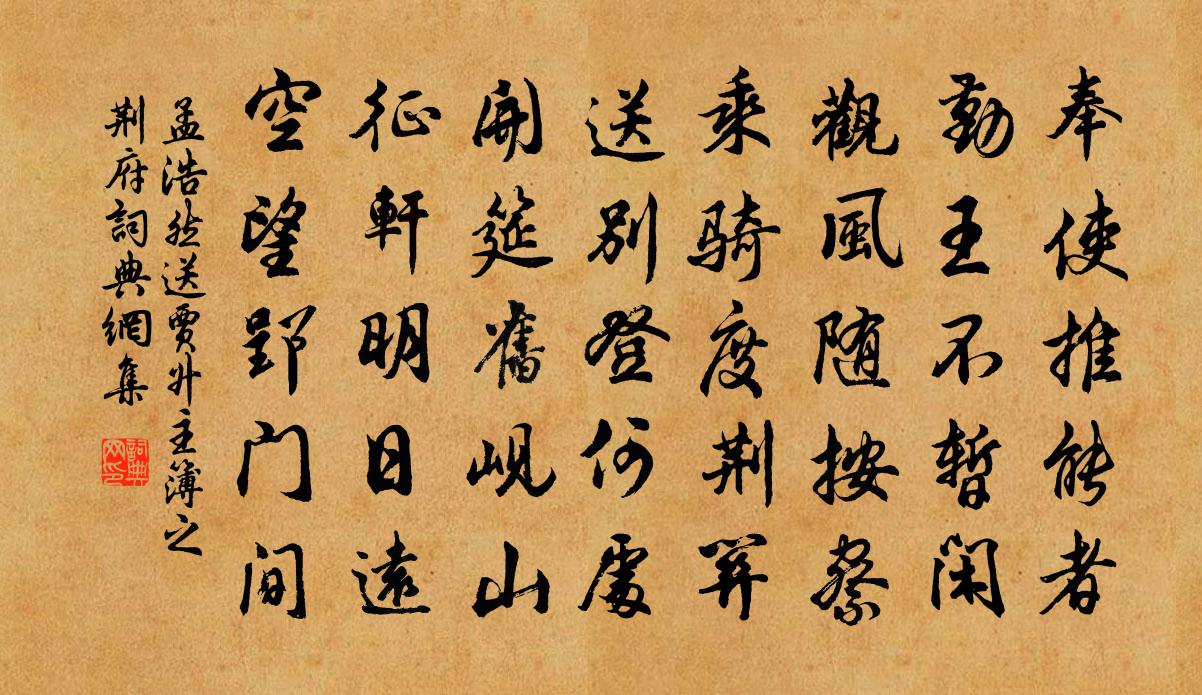 奉使推能者
勤王不暫閑
觀風随按察
乘骑度荆關
送别登何處
開筵舊岘山
征軒明日遠
空望郢门间
孟浩然送賈升主簿之
荆府詞典網集
詞典网印